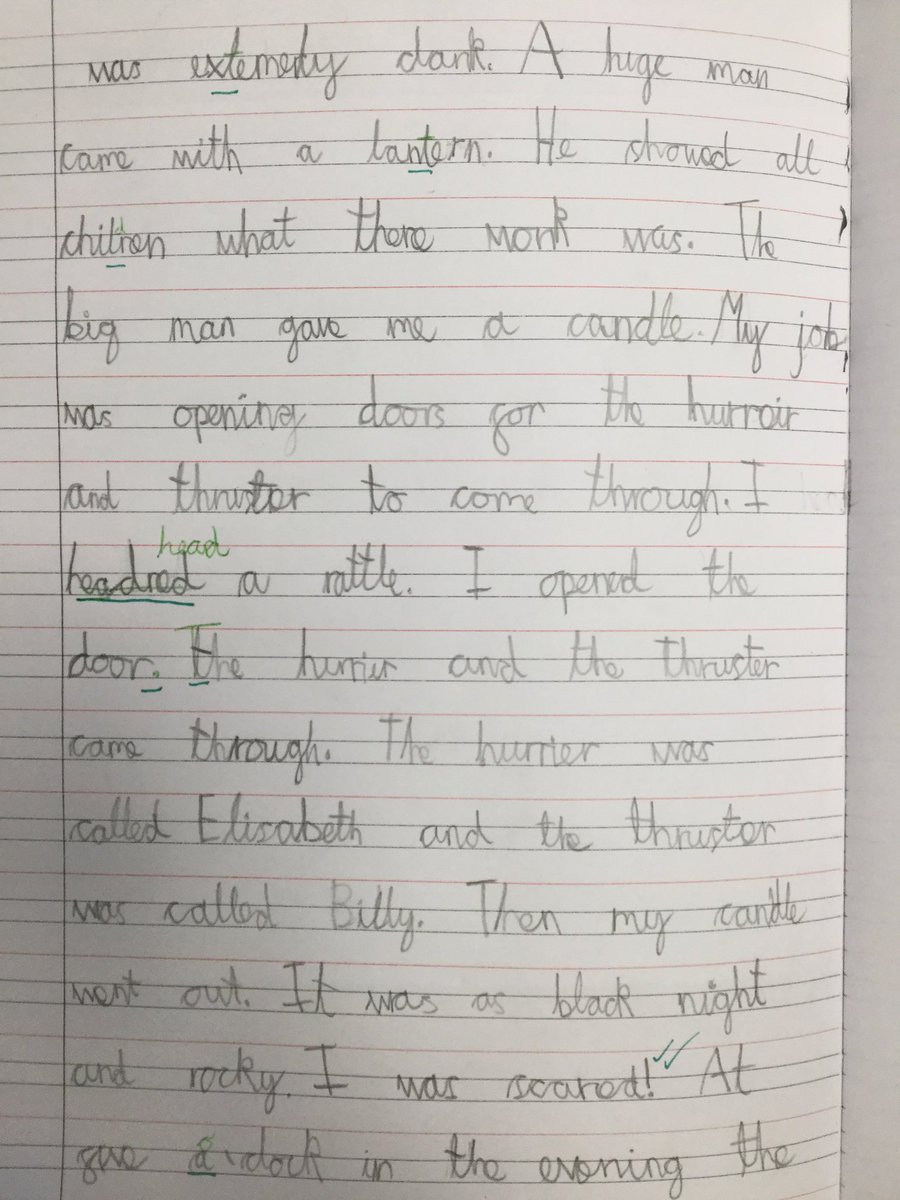 was extemerly dark. A huge man
came with a lantern. He showed all
chiltren what there work was. The
big man gave me a candle. My job
was opening doors for the hurroir
and thruster to come through. I
head
headred a rattle. I opened the
door. The hurrier and the thruster
came through. The hurrier was
called Elisabeth and the thruster
was called Billy. Then my candle
went out. It was as black night
and rocky. I was scared! At
five o'clock in the evening the